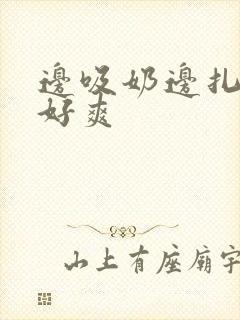 邊吸奶邊扎
好爽
山上有座廟宇